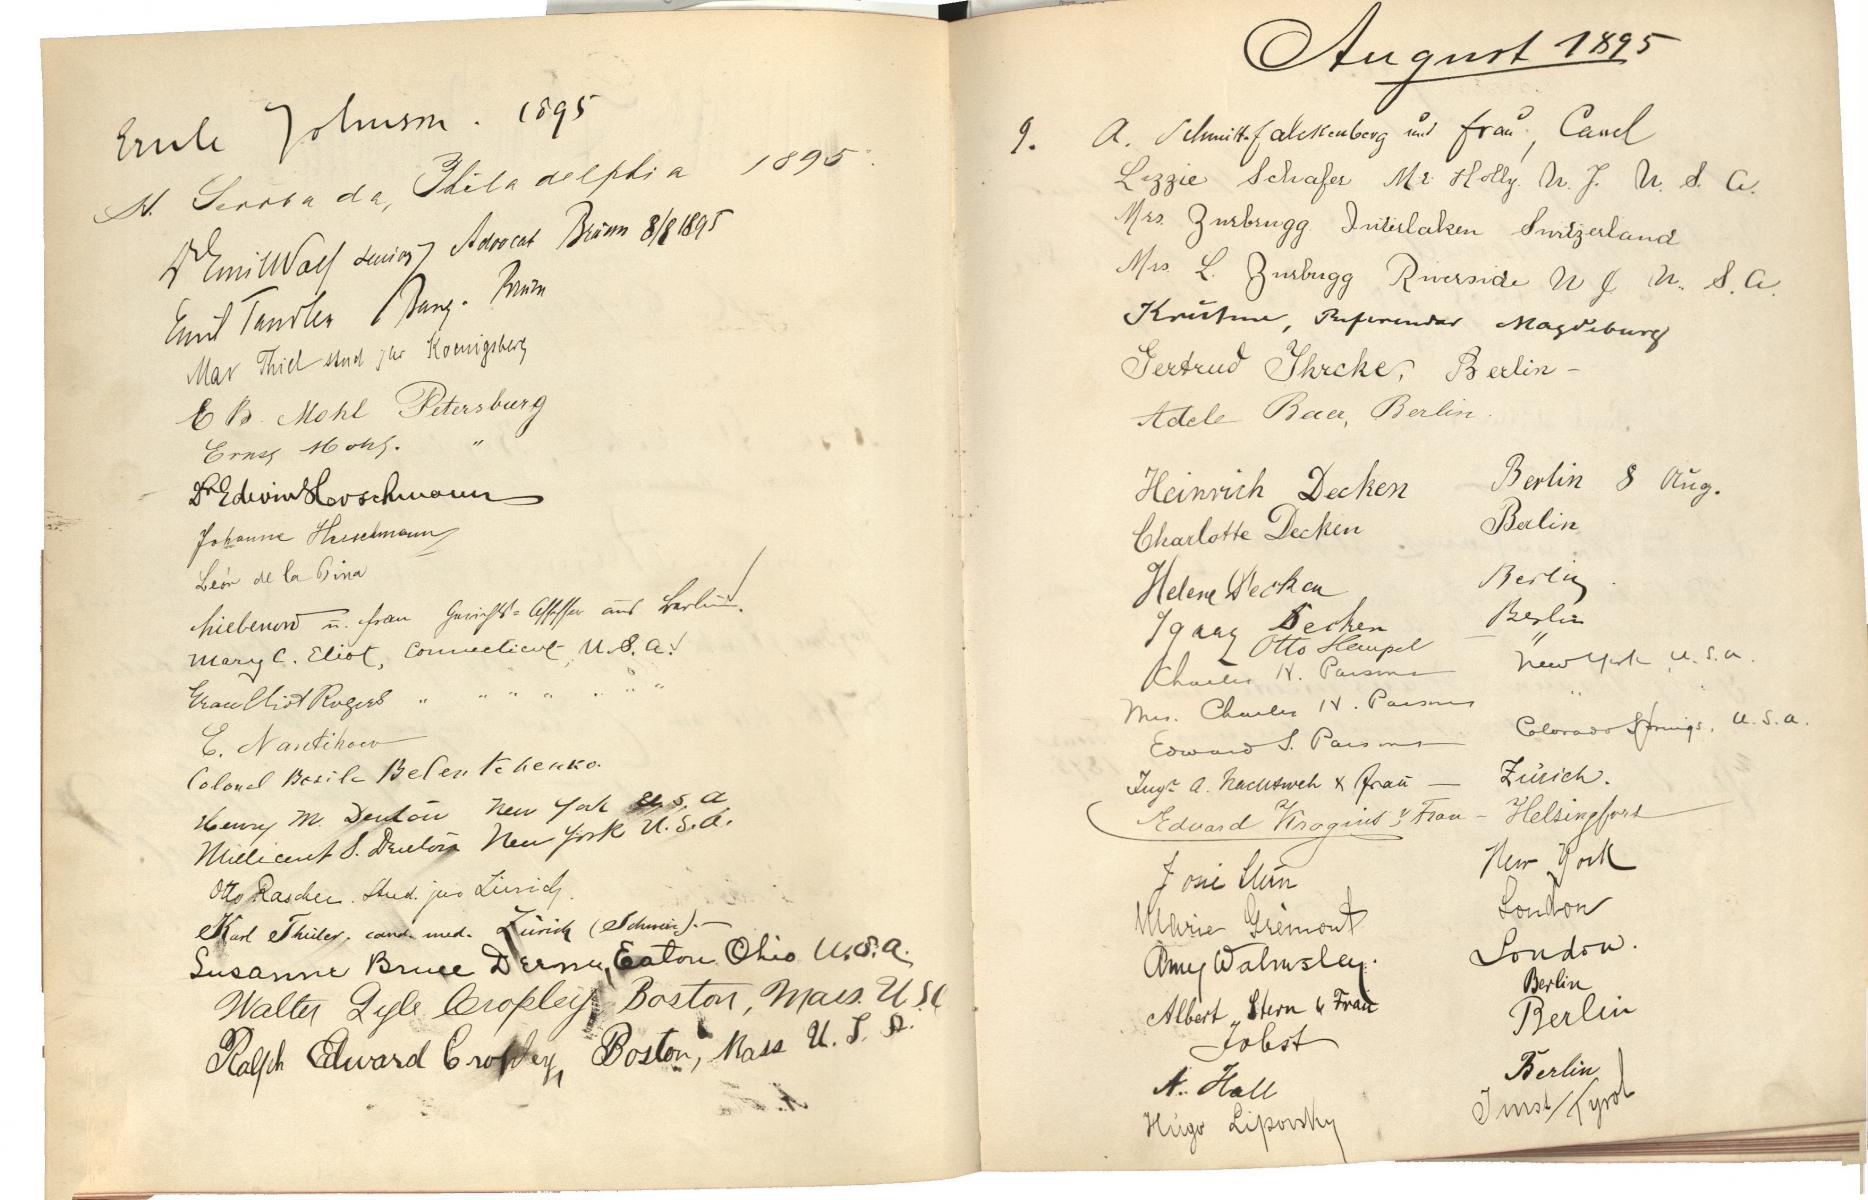 Emile Johnson. 1895
Philadelphia 1895
Dr Emil Wolf senior Advocat Brünn 8/8 1895
Emil Tandler Brünn
Max Thiel stud jur Koenigsberg
E B. Mohl Petersburg
Ernst Mohl. "
Dr Edwin Herschmann
Johanne Herschmann
León de la Pina
Liebenow u. Frau Gerichts-Assessor aus Berlin.
Mary C. Eliot, Connecticut, U.S.A.
Eliot Rogers " " " " " " "
E.
Colonel Basile Belentchenko.
Henry M. Denton New York U.S.A
Millicent S. Denton New York U.S.A.
Otto Rascher. Stud. jur Zürich.
Karl Theiler. cand. med. Zürich (Schweiz).-
Susanne Bruce Eaton Ohio U.S.A.
Walter Lyle Cropley, Boston, Mass. U.S.A
Ralph Edward Cropley, Boston, Mass U.S.A.
August 1895
9. A. Schmitt-Falckenberg und Frau, Cassel
Lizzie Schafer Mt Holly. N. J. U. S. A.
Mrs. Zurbrugg Interlaken Switzerland
Mrs. L. Zurbrugg Riverside N J U. S. A.
Referendar Magdeburg
Gertrud Ihrcke, Berlin -
Adele Baer, Berlin.
Heinrich Decken Berlin 8 Aug.
Charlotte Decken Berlin
Helene Decken Berlin
Ignaz Decken Berlin
Otto Hempel "
Charles H. Parsons New York, U.S.A.
Mrs. Charles H. Parsons "
Edward S. Parsons Colorado Springs, U.S.A.
Ingr A. Nachtweh & Frau — Zürich.
Edvard Krogius & Frau - Helsingfors
Josie Stern New York
Marie Grémont London
Amy Walmsley. London.
Albert Stern u Frau Berlin
Jobst Berlin
A. Hall Berlin
Hugo Lipovsky Imst/Tyrol